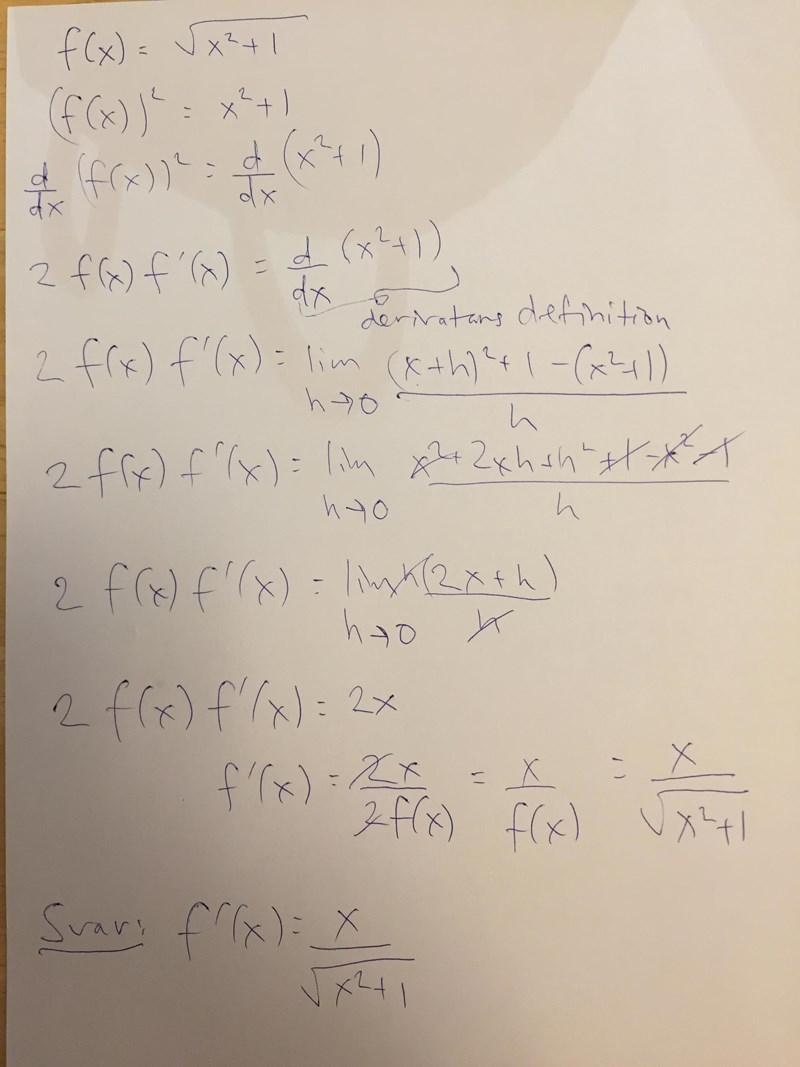 f(x) = √(x²+1)
(f(x))² = x²+1
d/dx (f(x))² = d/dx (x²+1)
2 f(x) f'(x) = d/dx (x²+1)
derivatans definition
2 f(x) f'(x) = lim h→0 ((x+h)²+1-(x²+1))/h
2 f(x) f'(x) = lim h→0 (x²+2xh+h²+1-x²-1)/h
2 f(x) f'(x) = lim h→0 h(2x+h)/h
2 f(x) f'(x) = 2x
f'(x) = 2x/2f(x) = x/f(x) = x/√(x²+1)
Svar: f'(x) = x/√(x²+1)